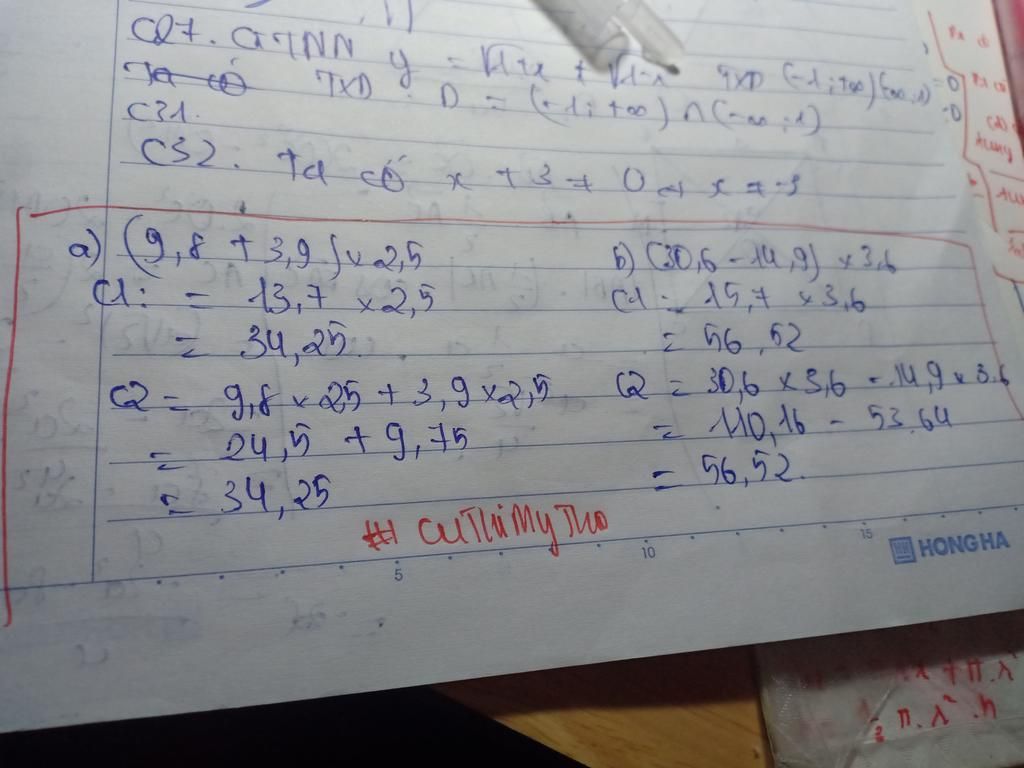 C27. GTNN y = √1+x + √1-x TXD (-1;+∞)(-∞;1)
Ta có TXD : D = (-1;+∞) ∩ (-∞;1)
C31.
C32: Ta có x + 3 ≠ 0 x ≠ -3
a) (9,8 + 3,9) x 2,5
C1: = 13,7 x 2,5
= 34,25.
C2 = 9,8 x 25 + 3,9 x 2,5
= 24,5 + 9,75
= 34,25
b) (30,6 - 14,9) x 3,6
C1 = 15,7 x 3,6
= 56,52
C2 = 30,6 x 3,6 - 14,9 x 3,6
= 110,16 - 53,64
= 56,52.
5 10 15
HONG HA